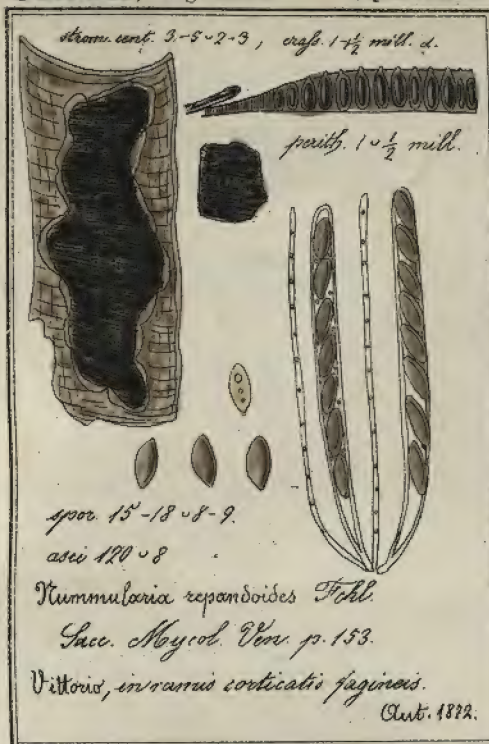 strom. cent. 3-5 ᴗ 2-3, crass. 1-1½ mill. d.
perith. 1 ᴗ ½ mill.
spor. 15-18 ᴗ 8-9.
asci 120 ᴗ 8
Nummularia repandoides Fckl.
Sacc. Mycol. Ven. p. 153.
Vittorio, in ramis corticatis fagineis.
Aut. 1872.